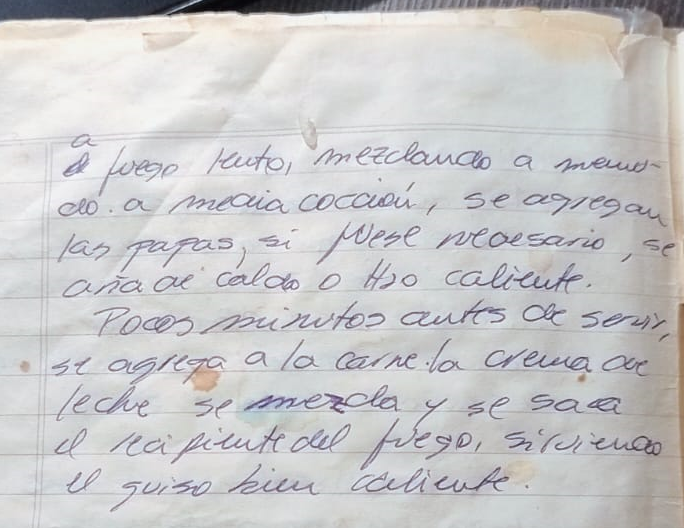 a
fuego lento, mezclando a menu-
do. a media cocción, se agregan
las papas, si fuese necesario, se
añade caldo o H2O caliente.
Pocos minutos antes de servir,
se agrega a la carne la crema de
leche se mezcla y se saca
el recipiente del fuego, sirviendo
el guiso bien caliente.